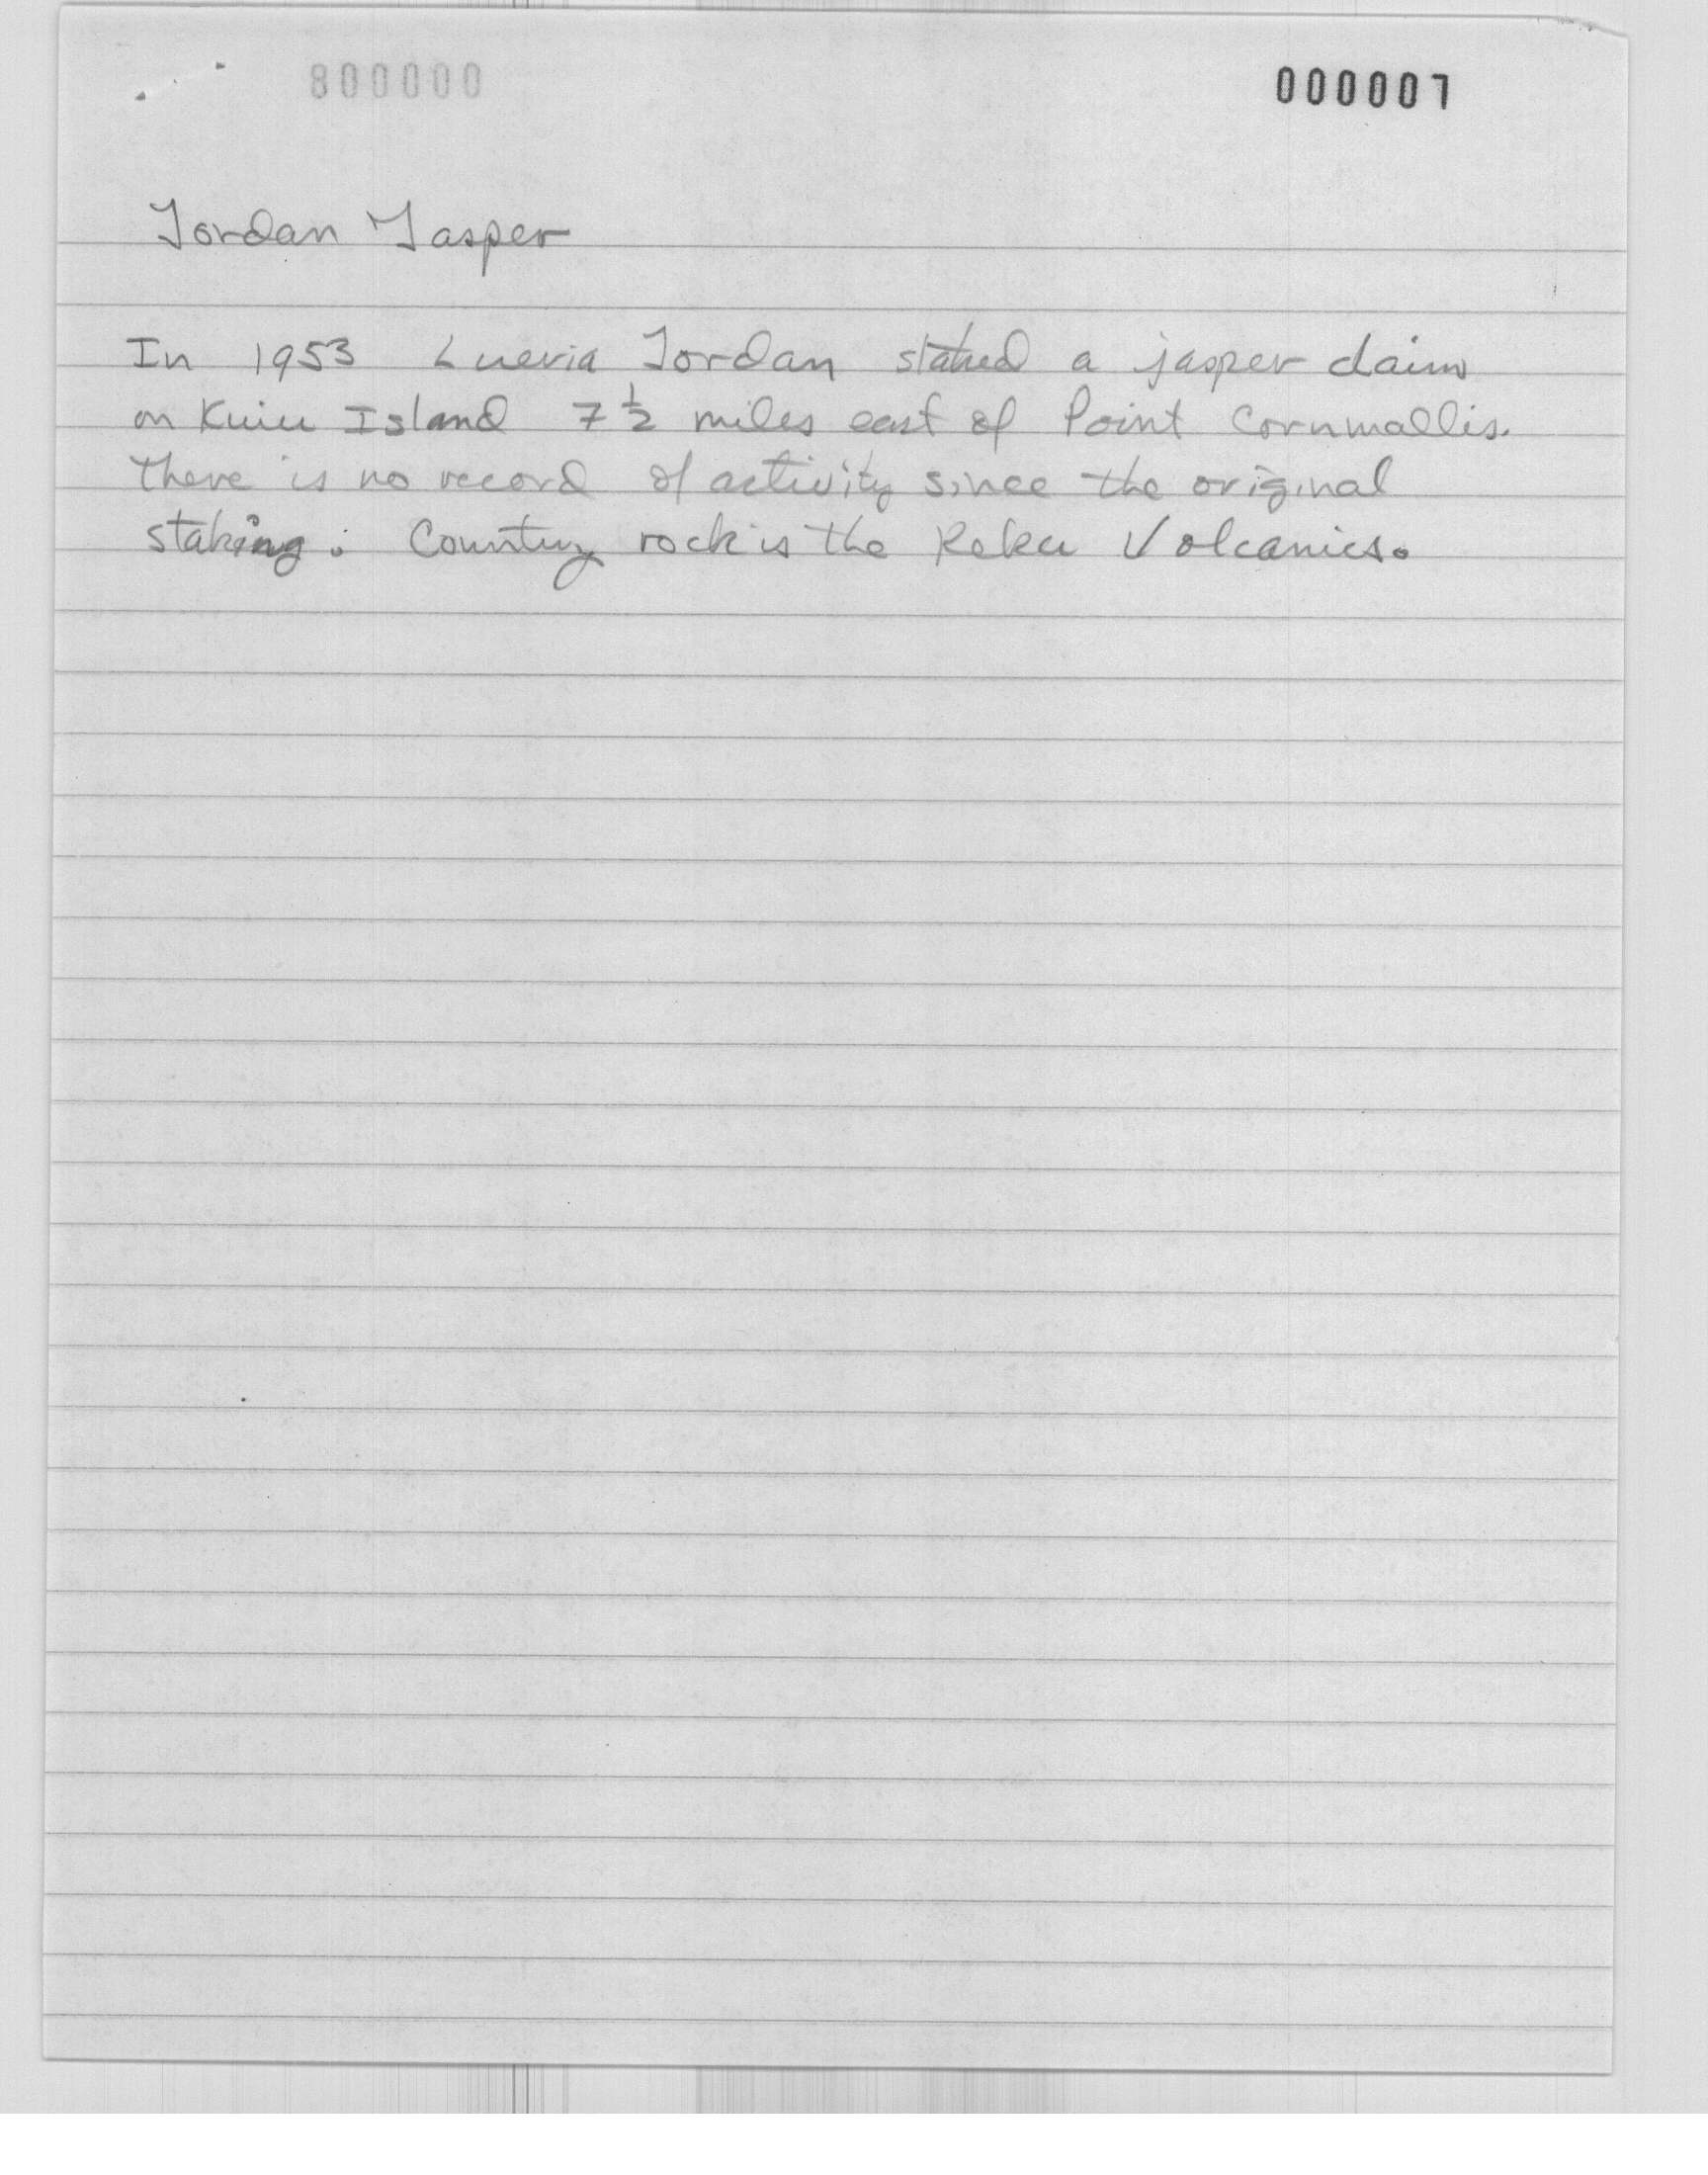 800000
000007
Jordan Jasper
In 1953 Luevia Jordan staked a jasper claim
on Kuiu Island 7 1/2 miles east of Point Cornwallis.
There is no record of activity since the original
staking. Country rock is the Keku Volcanics.